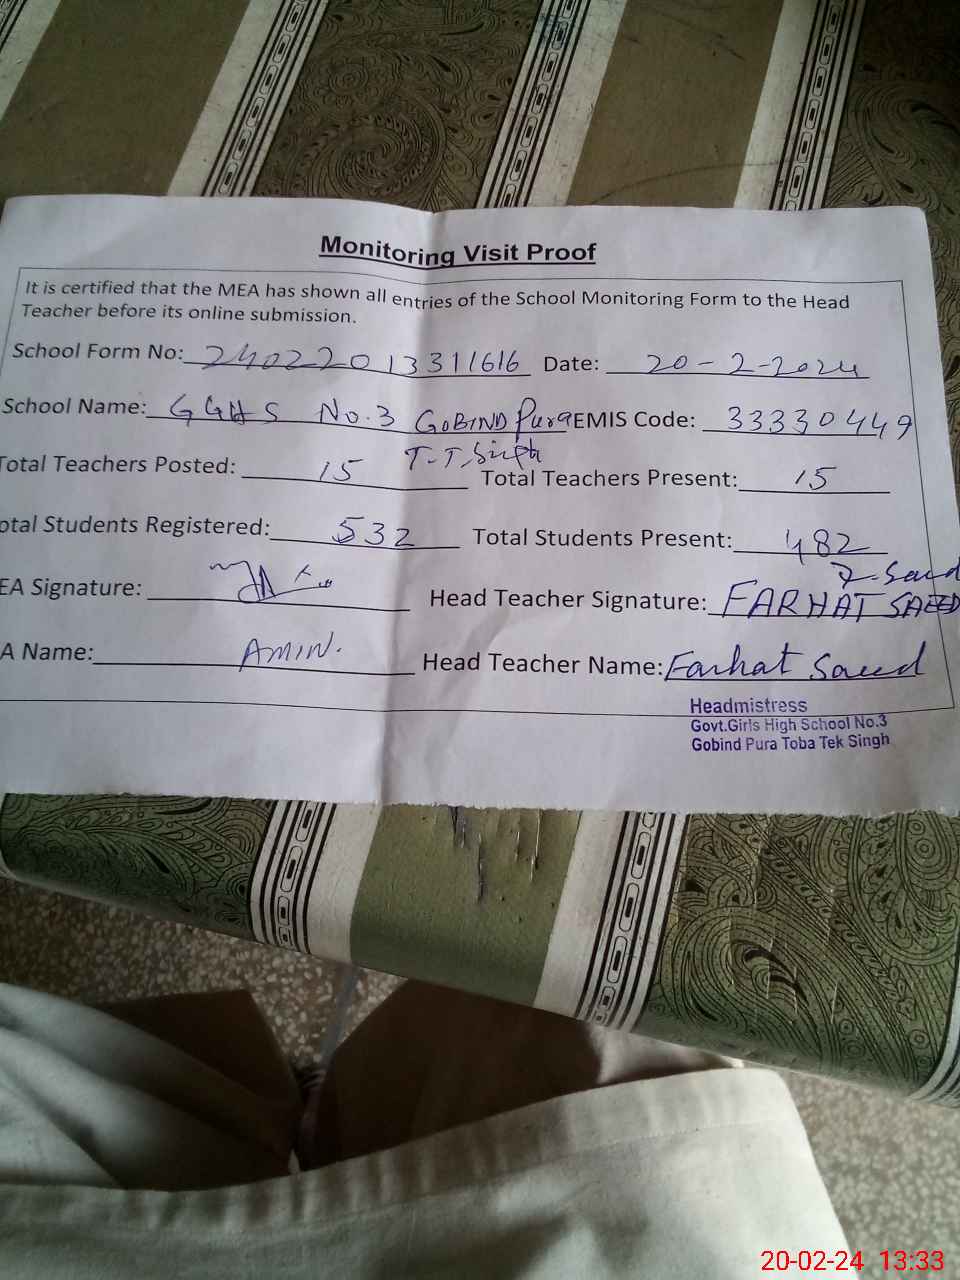 Monitoring Visit Proof
It is certified that the MEA has shown all entries of the School Monitoring Form to the Head
Teacher before its online submission.
School Form No: 24022013311616 Date: 20-2-2024
School Name: GGHS No.3 GOBIND Pura EMIS Code: 33330449
T.T.Singh
Total Teachers Posted: 15 Total Teachers Present: 15
otal Students Registered: 532 Total Students Present: 482
F.Saeed
EA Signature: Head Teacher Signature: FARHAT SAEED
A Name: AMIN. Head Teacher Name: Farhat Saeed
Headmistress
Govt.Girls High School No.3
Gobind Pura Toba Tek Singh
20-02-24 13:33